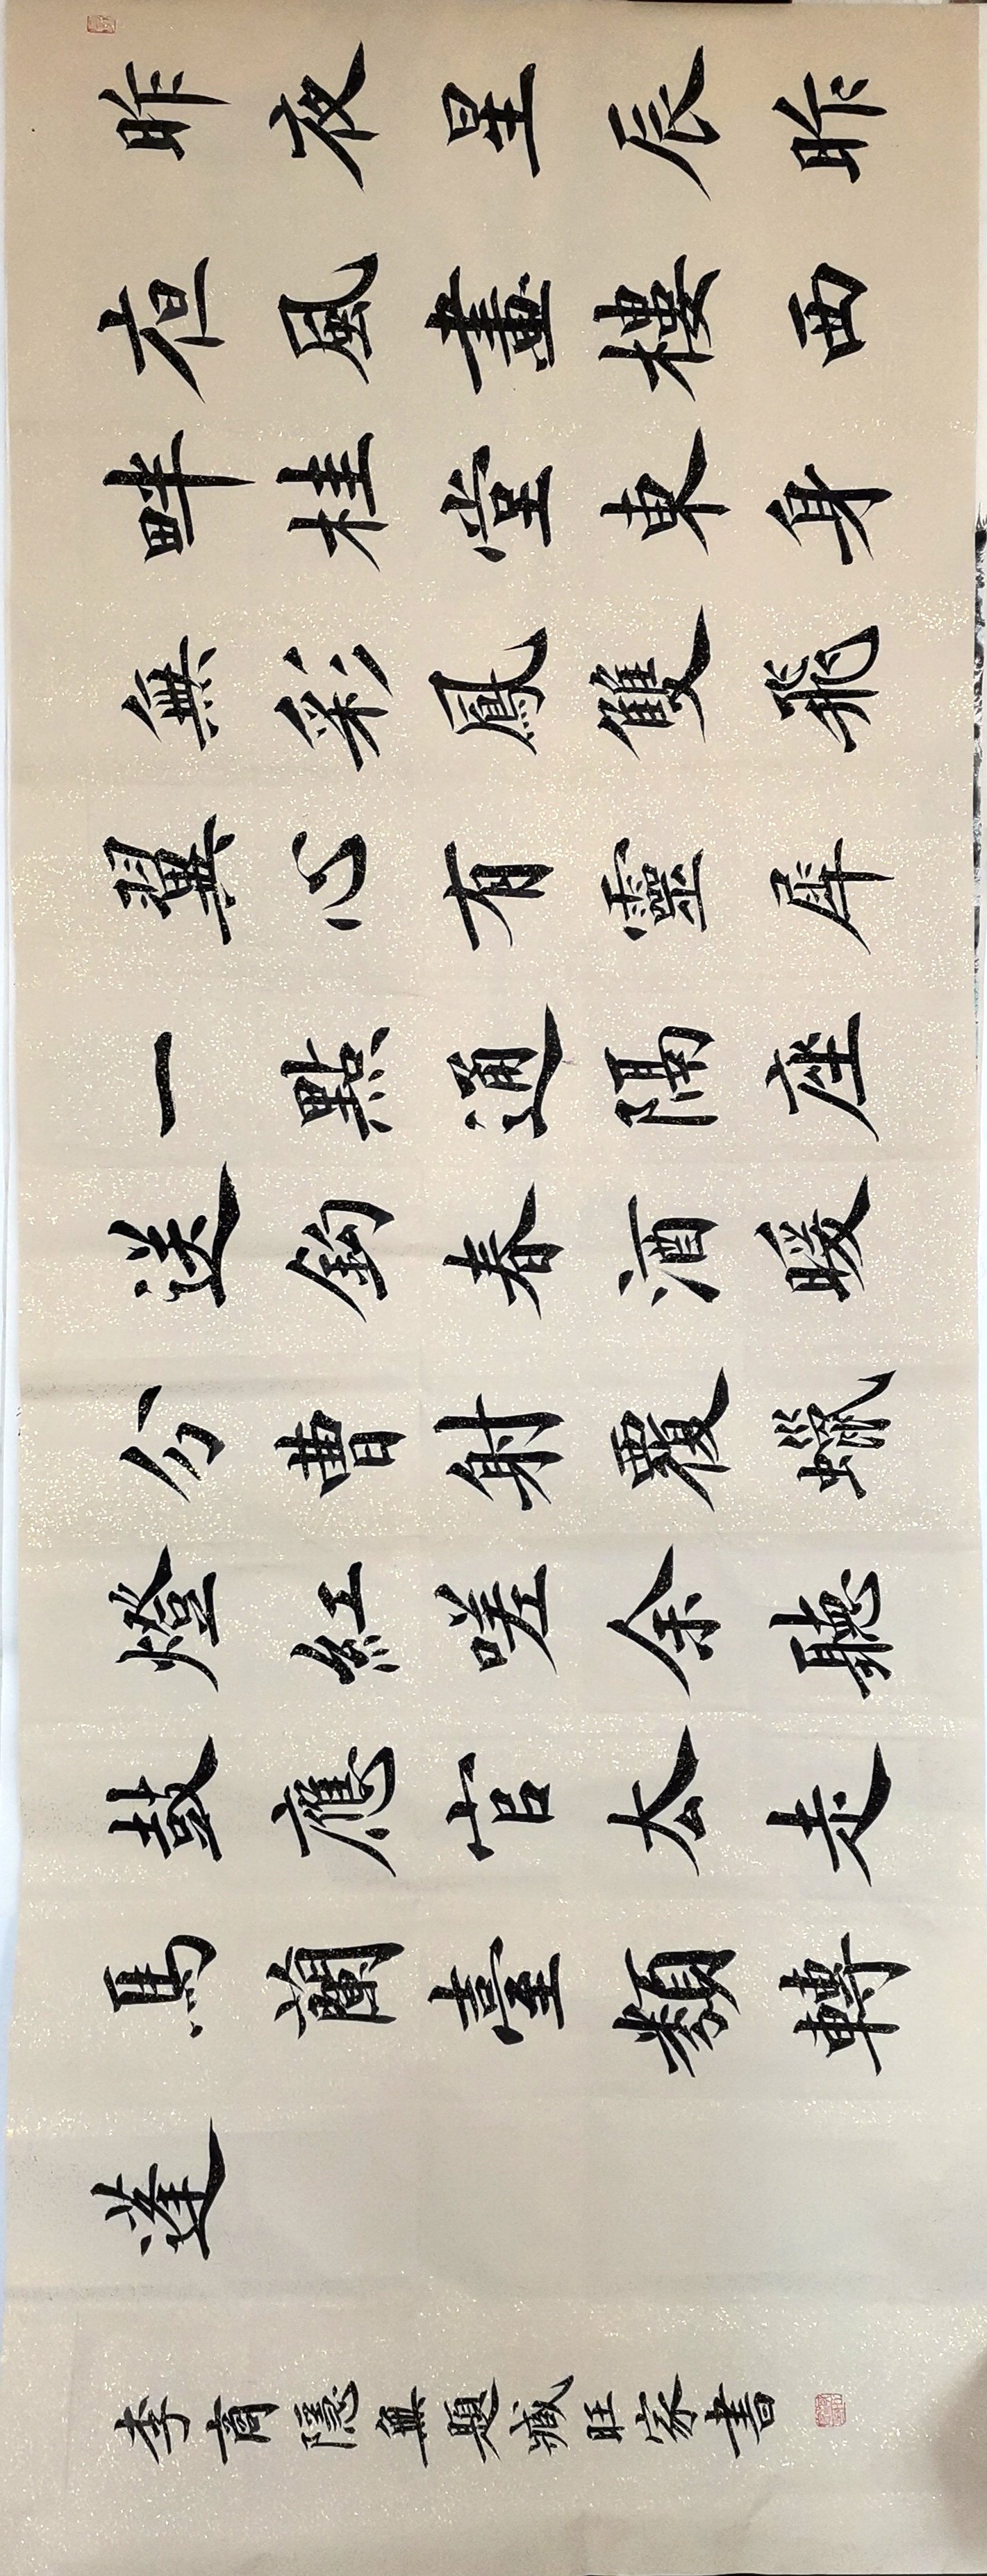 昨夜星辰昨
亱風畫樓西
畔桂堂東身
無彩鳳雙飛
翼心有靈犀
一點通隔座
送鉤春酒暖
分曹射覆蠟
燈紅嗟余聽
鼓應官去走
馬蘭臺類轉
蓬
李商隱無題臧旺家書